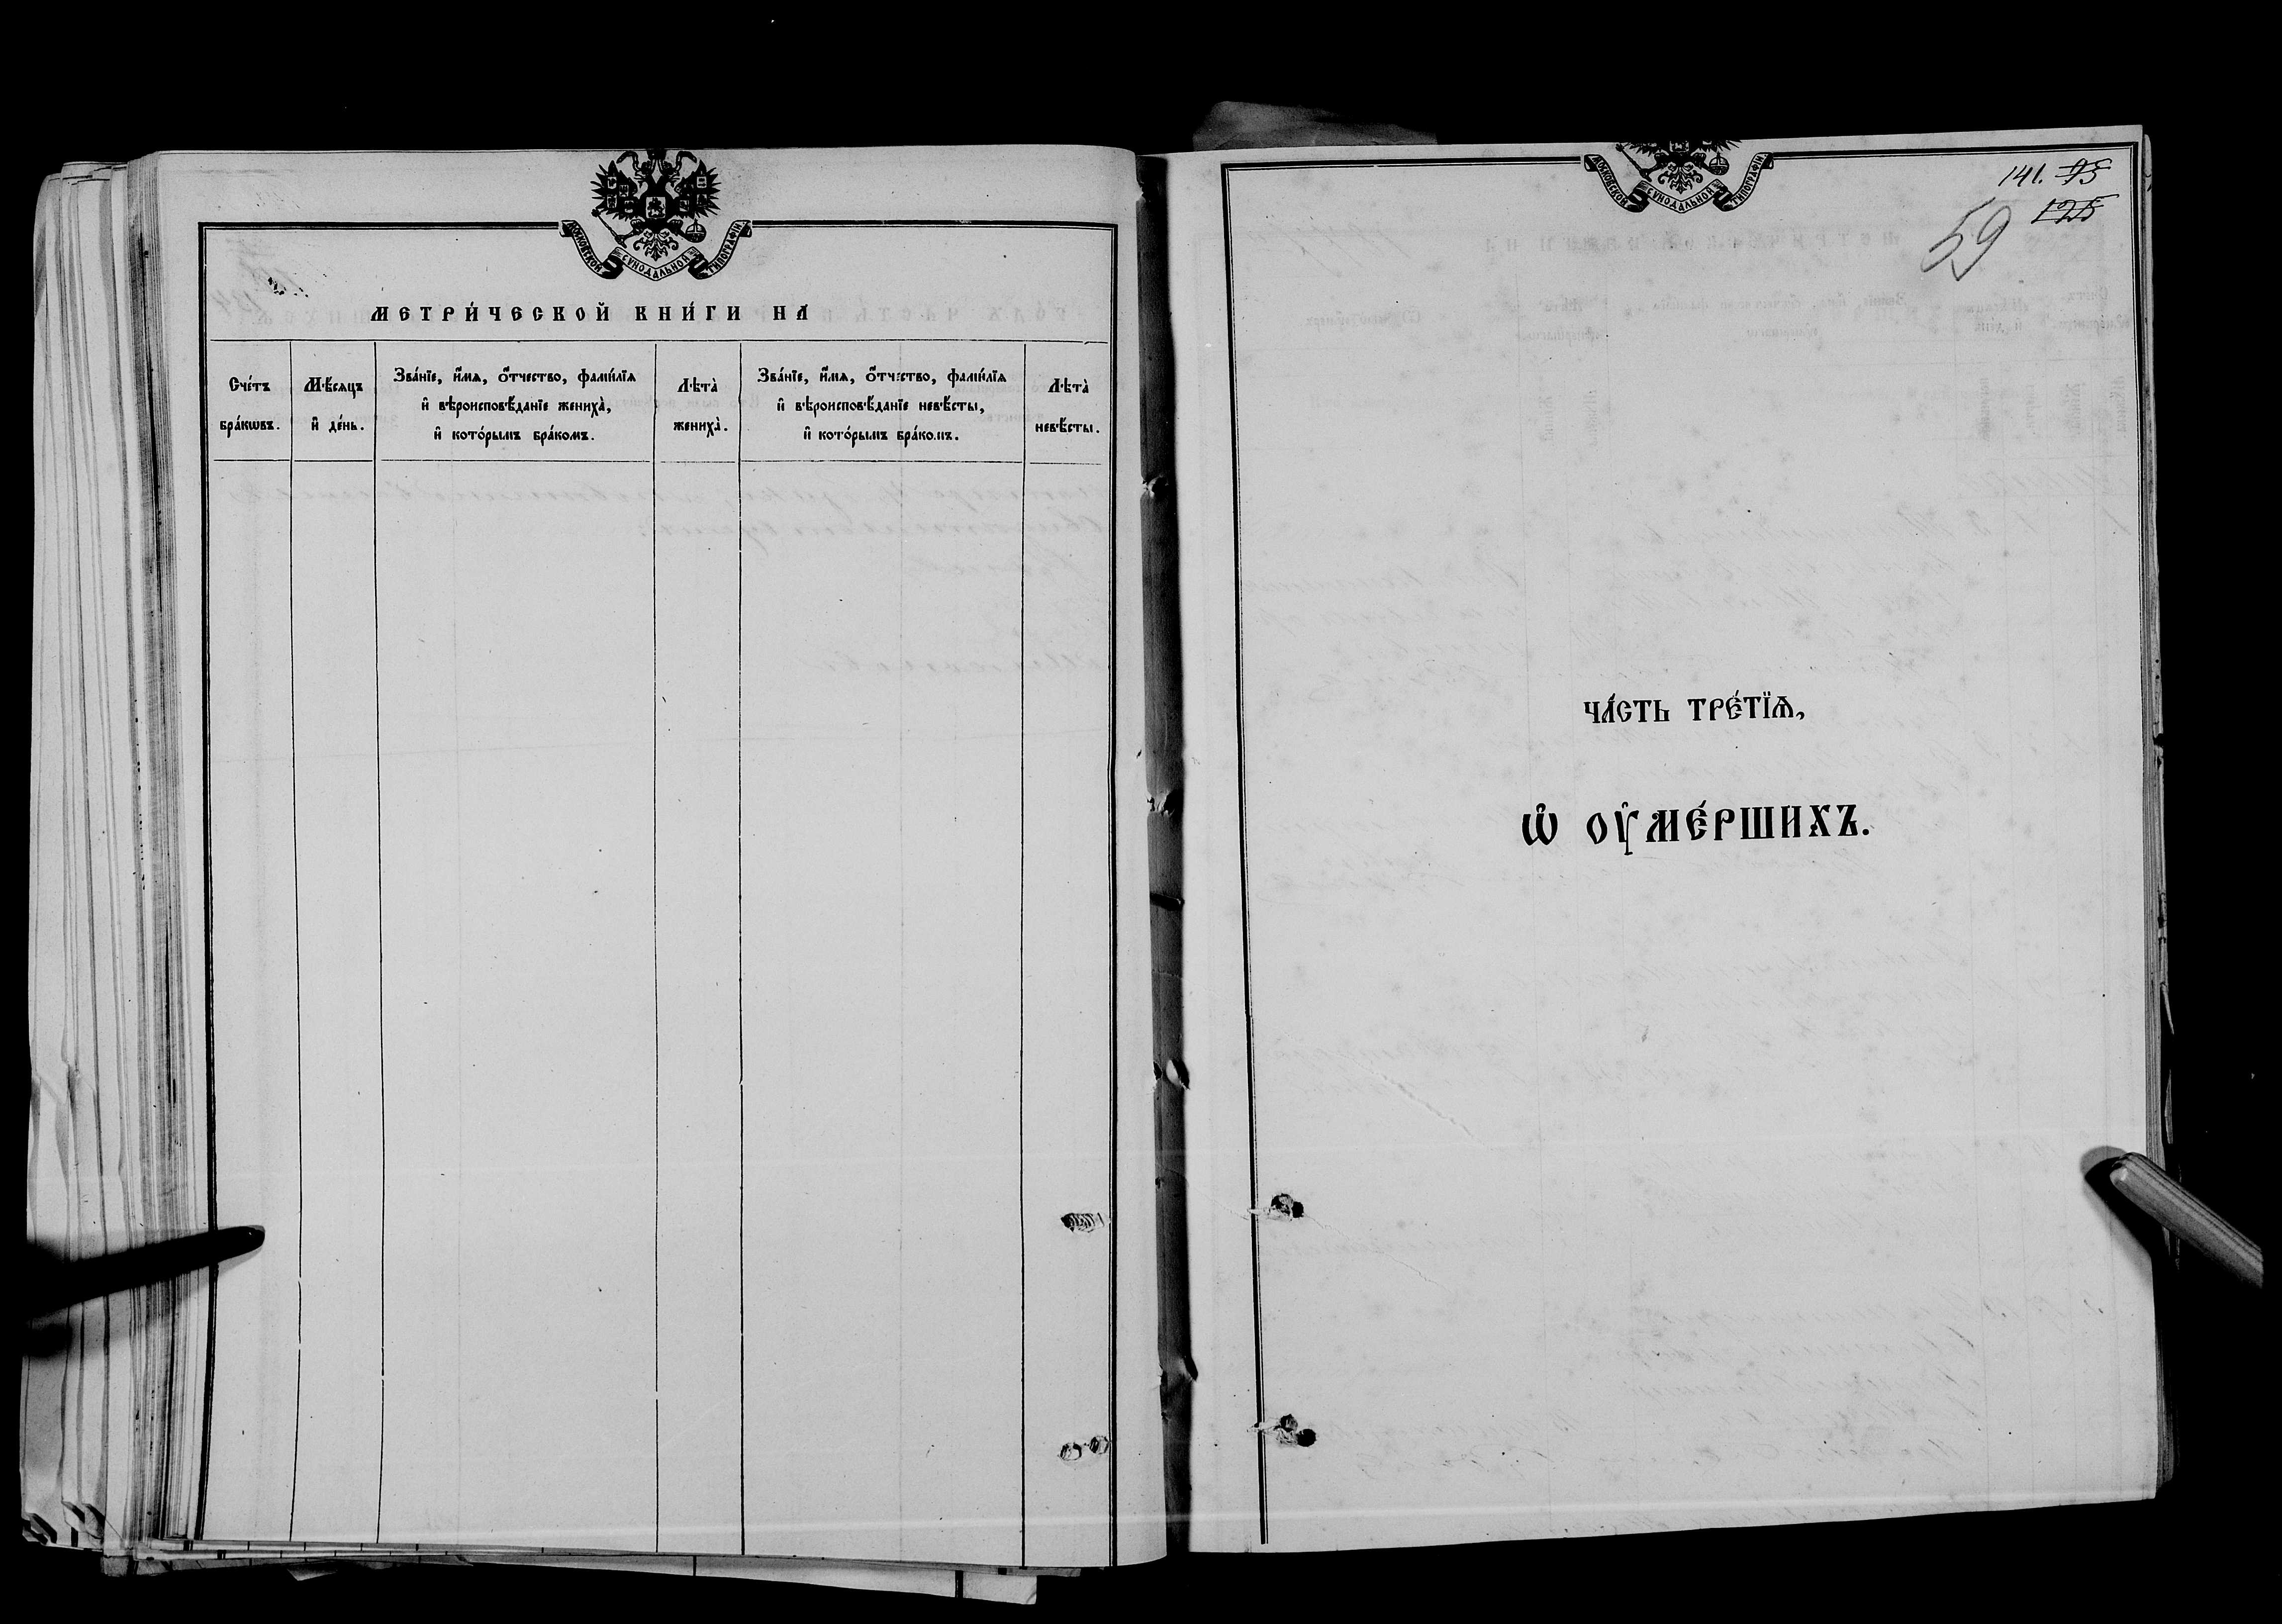 МОСКОВСКОЙ СѴНОДАЛЬНОЙ ТИПОГРАФІИ
МЕТРИ́ЧЕСКОЙ КНИ́ГИ НА
Сче́тъ
бра́кѡвъ.
Мѣ́сяцъ
и҆ де́нь.
Зва́нїе, и҆́мѧ, ѻ҆́тчество, фамі́лїѧ
и҆ вѣроисповѣ́данїе жениха̀,
и҆ кото́рымъ бра́комъ.
Лѣта̀
жениха̀.
Зва́нїе, и҆́мѧ, ѻ҆́тчество, фамі́лїѧ
и҆ вѣроисповѣ́данїе невѣ́сты,
и҆ кото́рымъ бра́комъ.
Лѣта̀
невѣ́сты.
МОСКОВСКОЙ СѴНОДАЛЬНОЙ ТИПОГРАФІИ
141. 95
125
59
ЧА́СТЬ ТРЕ́ТЇѦ,
Ѡ҆ ОУ҆МЕ́РШИХЪ.